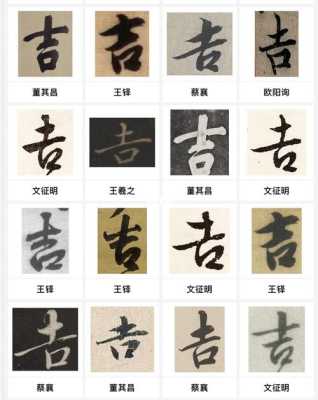 吉 吉 吉 吉
董其昌 王铎 蔡襄 欧阳询
吉 吉 吉 吉
文征明 王羲之 董其昌 文征明
吉 吉 吉 吉
王铎 王铎 文征明 王铎
吉 吉 吉 吉
蔡襄 董其昌 蔡襄 文征明